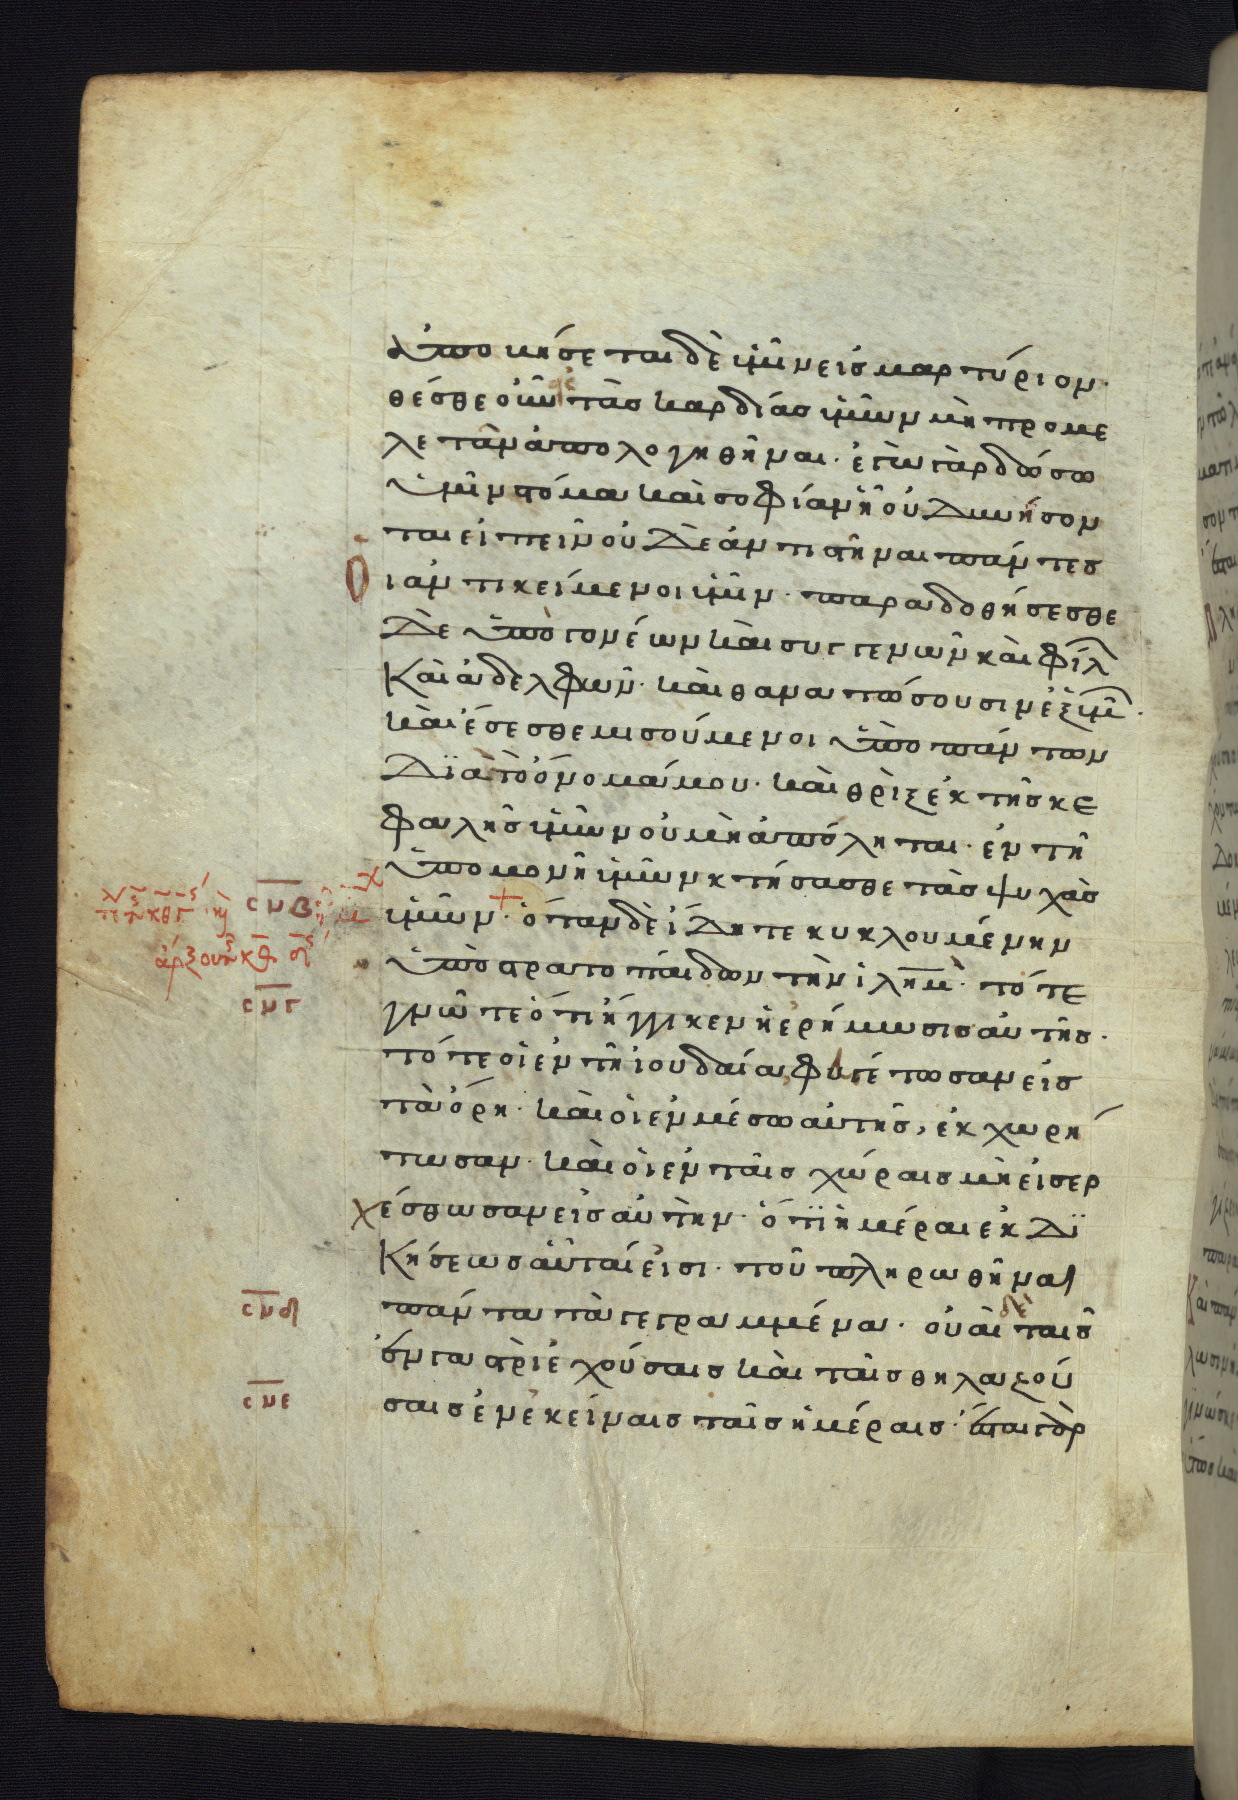 ἀποκήσεται δὲ ὑμῖν εἰς μαρτύριον·
θέσθε οὖν τὰς καρδίας ὑμῶν μὴ προμε
λετᾶν ἀπολογηθῆναι· ἐγὼ γὰρ δώσω
ὑμῖν στόμα καὶ σοφίαν ᾗ οὐ δυνήσον
ται εἰπεῖν οὐδὲ ἀντιστῆναι πάντες
οἱ ἀντικείμενοι ὑμῖν· παραδοθήσεσθε
δὲ ὑπὸ γονέων καὶ συγγενῶν καὶ φίλ
καὶ ἀδελφῶν· καὶ θανατώσουσιν ἐξ ὑμ·
καὶ ἔσεσθε μισούμενοι ὑπὸ πάντων
διὰ τὸ ὄνομά μου· καὶ θρὶξ ἐκ τῆς κε
φαλῆς ὑμῶν οὐ μὴ ἀπόληται· ἐν τῇ
ὑπομονῇ ὑμῶν κτήσασθε τὰς ψυχὰς
σνβ
ὑμῶν· ὅταν δὲ ἴδητε κυκλουμένην
ὑπὸ στρατοπαίδων τὴν ἱλημ· τότε
σνγ
γνῶτε ὅτι ἤγγικεν ἡ ἐρήμωσις αὐτῆς·
τότε οἱ ἐν τῇ ἰουδαία φυγέτωσαν εἰς
τὰ ὄρη· καὶ οἱ ἐν μέσω αὐτῆς, ἐκχωρή
τωσαν· καὶ οἱ ἐν ταῖς χώραις μὴ εἰσερ
χέσθωσαν εἰς αὐτήν· ὅτι ἡμέραι ἐκδι
κήσεως αὗται εἰσι· τοῦ πληρωθῆναι
σνδ
πάντα τὰ γεγραμμένα· οὐαὶ ταῖς
ἐν γαστρὶ ἐχούσαις καὶ ταῖς θηλαζού
σνε
σαις ἐν ἐκείναις ταῖς ἡμέραις· ἔσται γὰρ